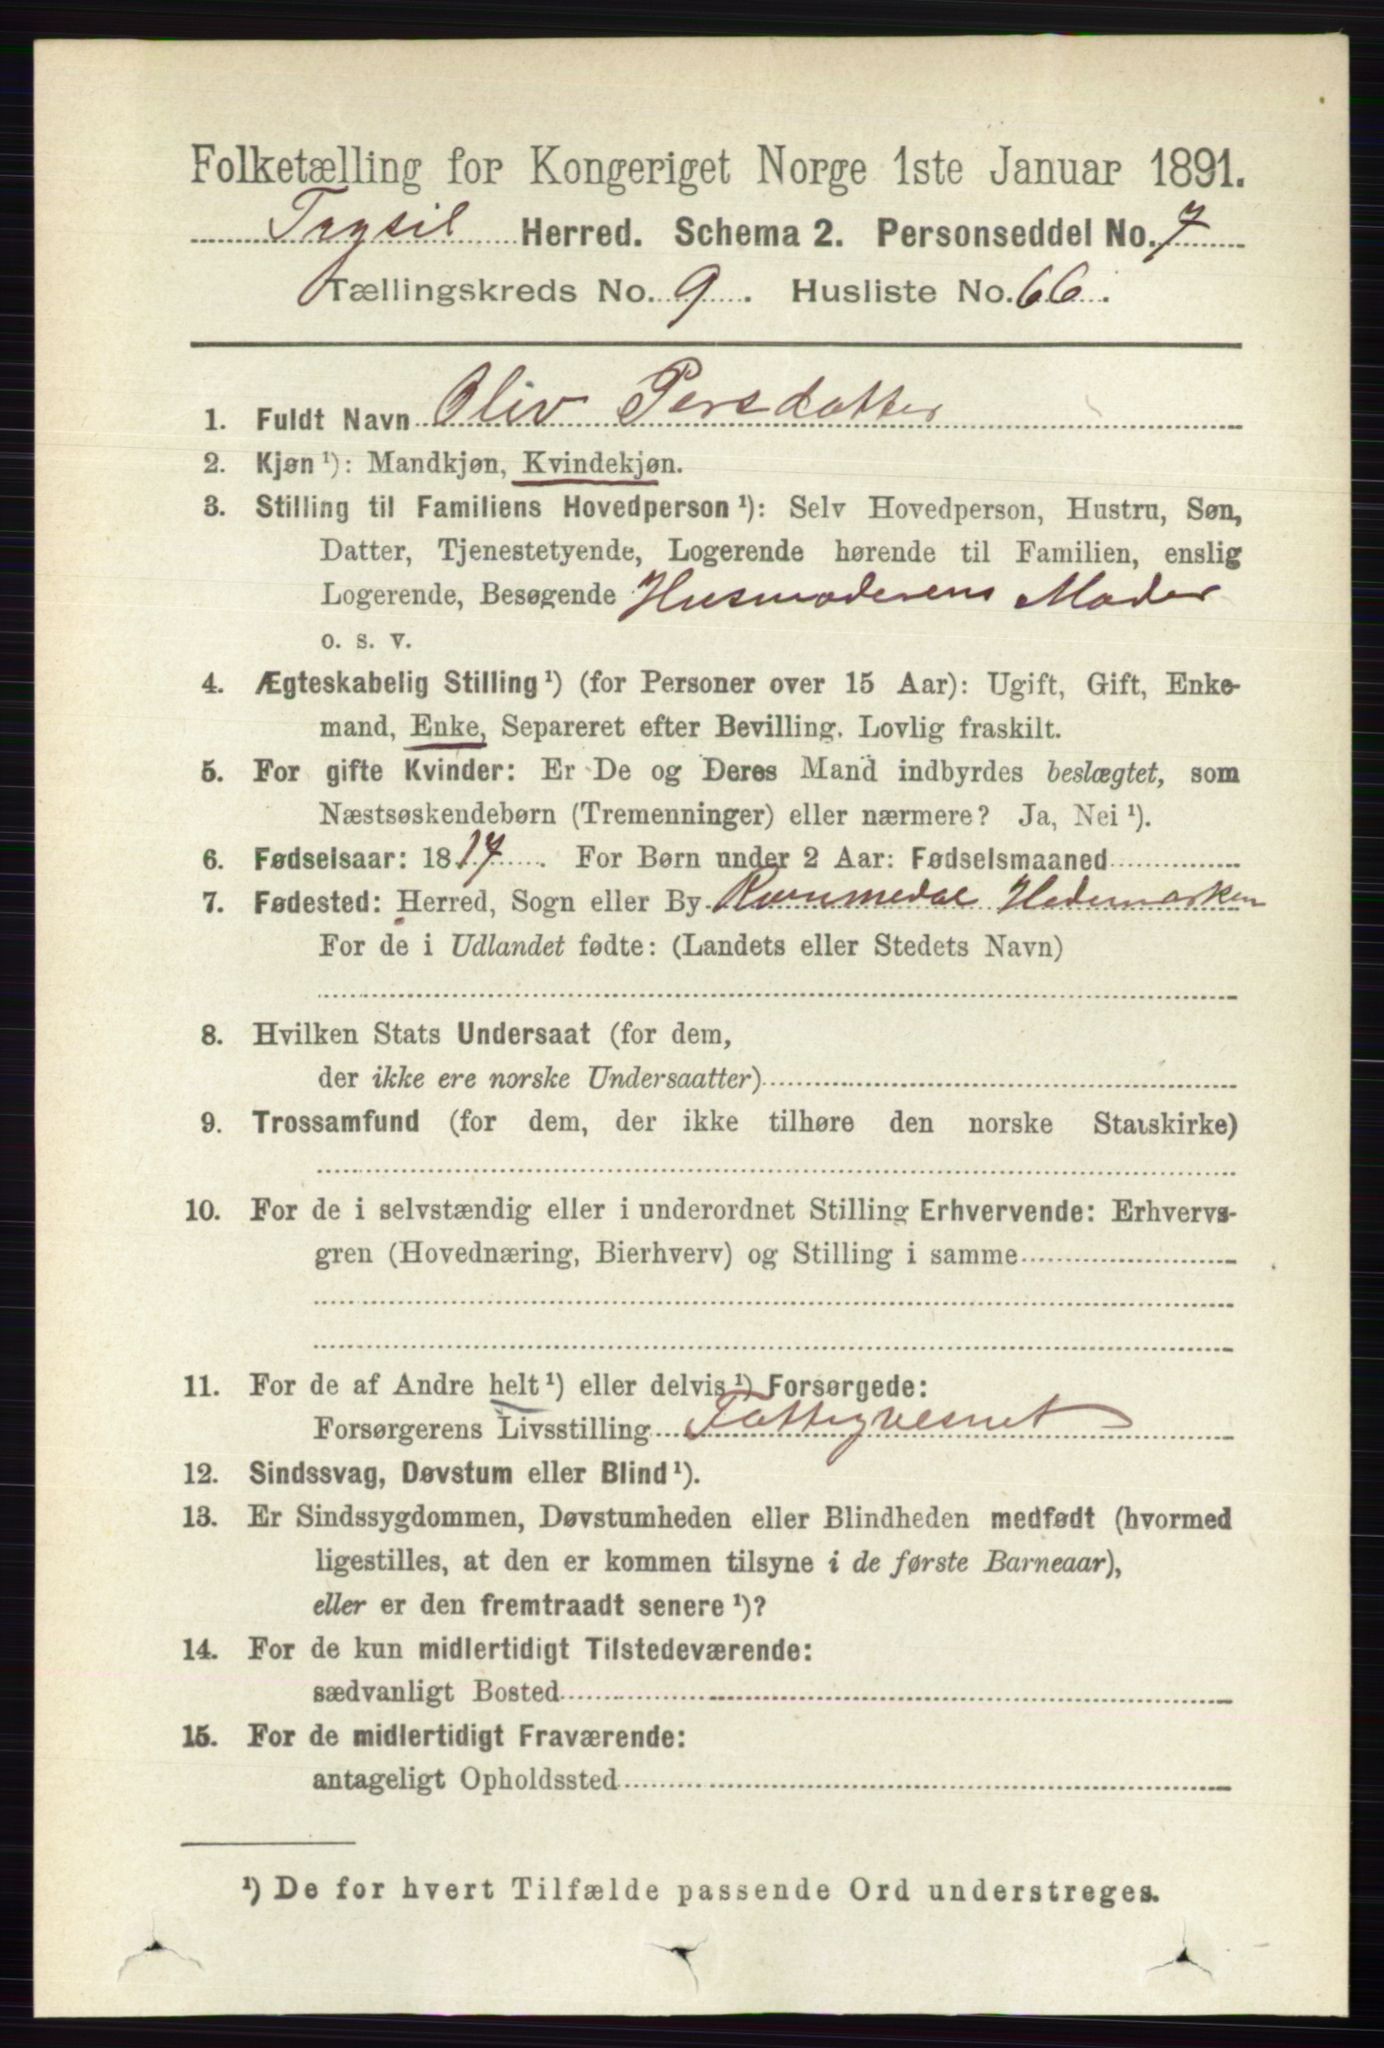 Folketælling for Kongeriget Norge 1ste Januar 1891.
Trysil Herred. Schema 2. Personseddel No. 7
Tællingskreds No. 9. Husliste No. 66.
1. Fuldt Navn Oliv Persdatter
2. Kjøn ¹): Mandkjøn, Kvindekjøn.
3. Stilling til Familiens Hovedperson ¹): Selv Hovedperson, Hustru, Søn,
Datter, Tjenestetyende, Logerende hørende til Familien, enslig
Logerende, Besøgende Husmoderens Moder
o. s. v.
4. Ægteskabelig Stilling ¹) (for Personer over 15 Aar): Ugift, Gift, Enke-
mand, Enke, Separeret efter Bevilling. Lovlig fraskilt.
5. For gifte Kvinder: Er De og Deres Mand indbyrdes beslægtet, som
Næstsøskendebørn (Tremenninger) eller nærmere? Ja, Nei ¹).
6. Fødselsaar: 1817. For Børn under 2 Aar: Fødselsmaaned
7. Fødested: Herred, Sogn eller By Romedal Hedemarken
For de i Udlandet fødte: (Landets eller Stedets Navn)
8. Hvilken Stats Undersaat (for dem,
der ikke ere norske Undersaatter)
9. Trossamfund (for dem, der ikke tilhøre den norske Statskirke)
10. For de i selvstændig eller i underordnet Stilling Erhvervende: Erhvervs-
gren (Hovednæring, Bierhverv) og Stilling i samme
11. For de af Andre helt ¹) eller delvis ¹) Forsørgede:
Forsørgerens Livsstilling Fattigvesnet
12. Sindssvag, Døvstum eller Blind ¹).
13. Er Sindssygdommen, Døvstumheden eller Blindheden medfødt (hvormed
ligestilles, at den er kommen tilsyne i de første Barneaar),
eller er den fremtraadt senere ¹)?
14. For de kun midlertidigt Tilstedeværende:
sædvanligt Bosted
15. For de midlertidigt Fraværende:
antageligt Opholdssted
¹) De for hvert Tilfælde passende Ord understreges.